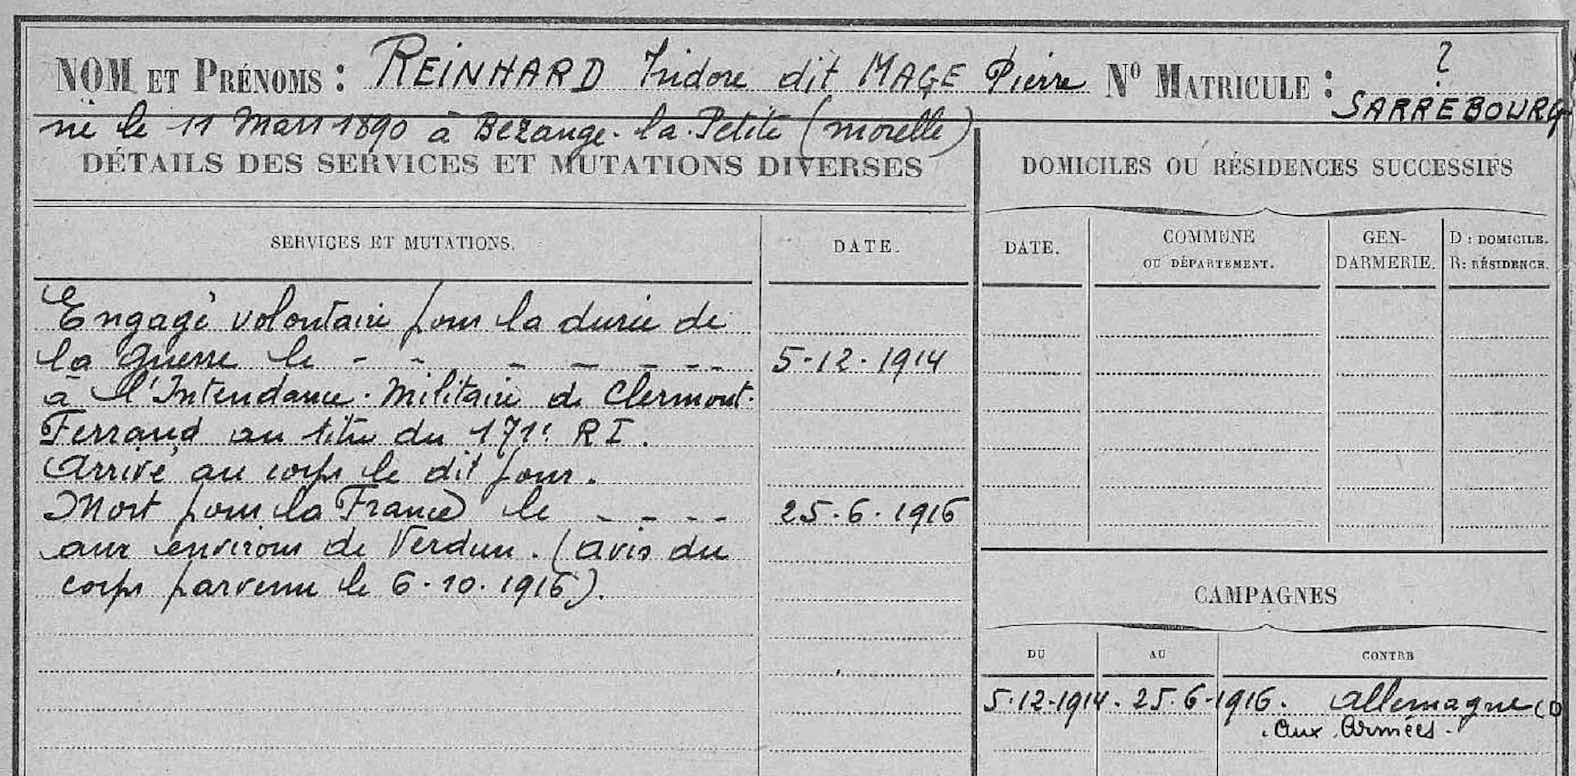 NOM ET PRÉNOMS : REINHARD Isidore dit MAGE Pierre N° MATRICULE : ?
SARREBOURG
né le 11 Mars 1890 à Bezange-la-Petite (moselle)
DÉTAILS DES SERVICES ET MUTATIONS DIVERSES
SERVICES ET MUTATIONS. DATE.
Engagé volontaire pour la durée de
la guerre le - - - - - - - 5-12-1914
à l'Intendance Militaire de Clermont-
Ferrand au titre du 171e RI.
Arrivé au corps le dit jour.
Mort pour la France le - - - - 25-6-1916
aux environs de Verdun. (avis du
corps parvenu le 6-10-1916).
DOMICILES OU RÉSIDENCES SUCCESSIFS
DATE. COMMUNE OU DÉPARTEMENT. GEN-DARMERIE. D : DOMICILE. R : RÉSIDENCE.
CAMPAGNES
DU AU CONTRE
5-12-1914. 25-6-1916. Allemagne (D
Aux Armées.